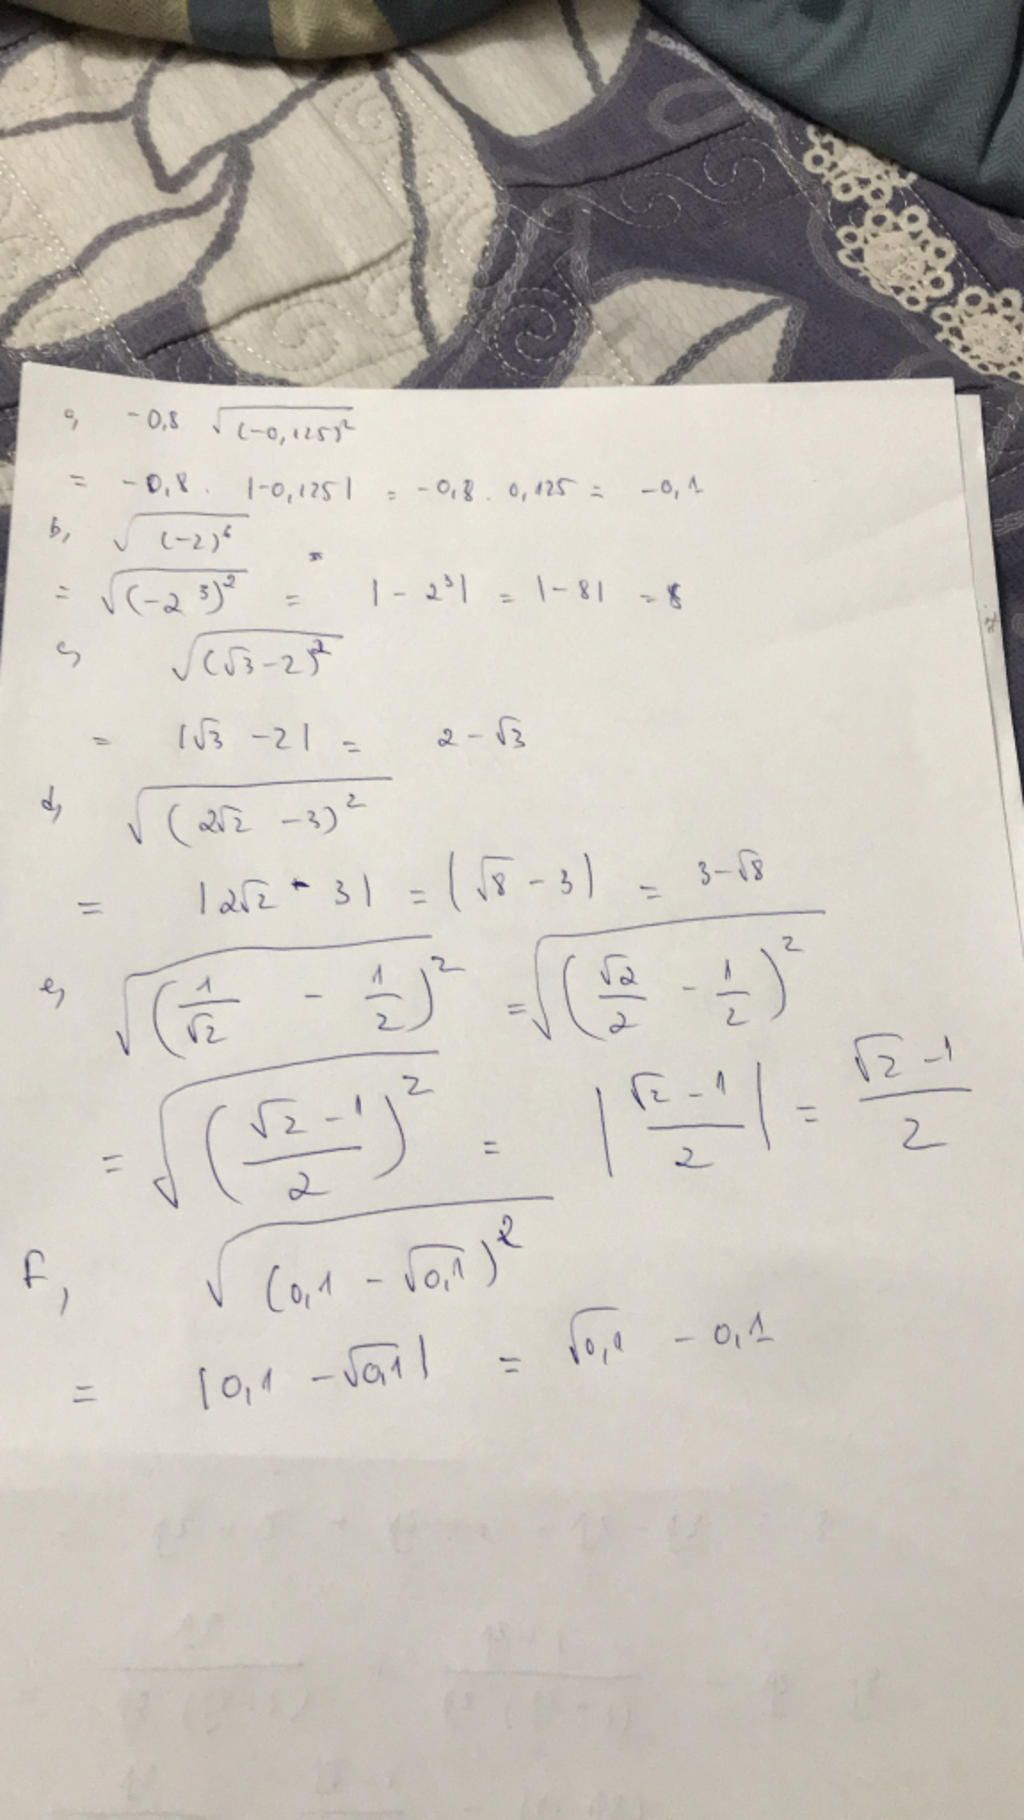 a, -0,8 √(-0,125)²
= -0,8 . |-0,125| = -0,8 . 0,125 = -0,1
b, √(-2)⁶
= √(-2³)² = |-2³| = |-8| = 8
c, √(√3-2)²
= |√3 -2| = 2-√3
d, √(2√2 -3)²
= |2√2 - 3| = |√8 - 3| = 3-√8
e, √(1/√2 - 1/2)² = √(√2/2 - 1/2)²
= √((√2-1)/2)² = |(√2-1)/2| = (√2-1)/2
F, √(0,1 - √0,1)²
= |0,1 - √0,1| = √0,1 - 0,1